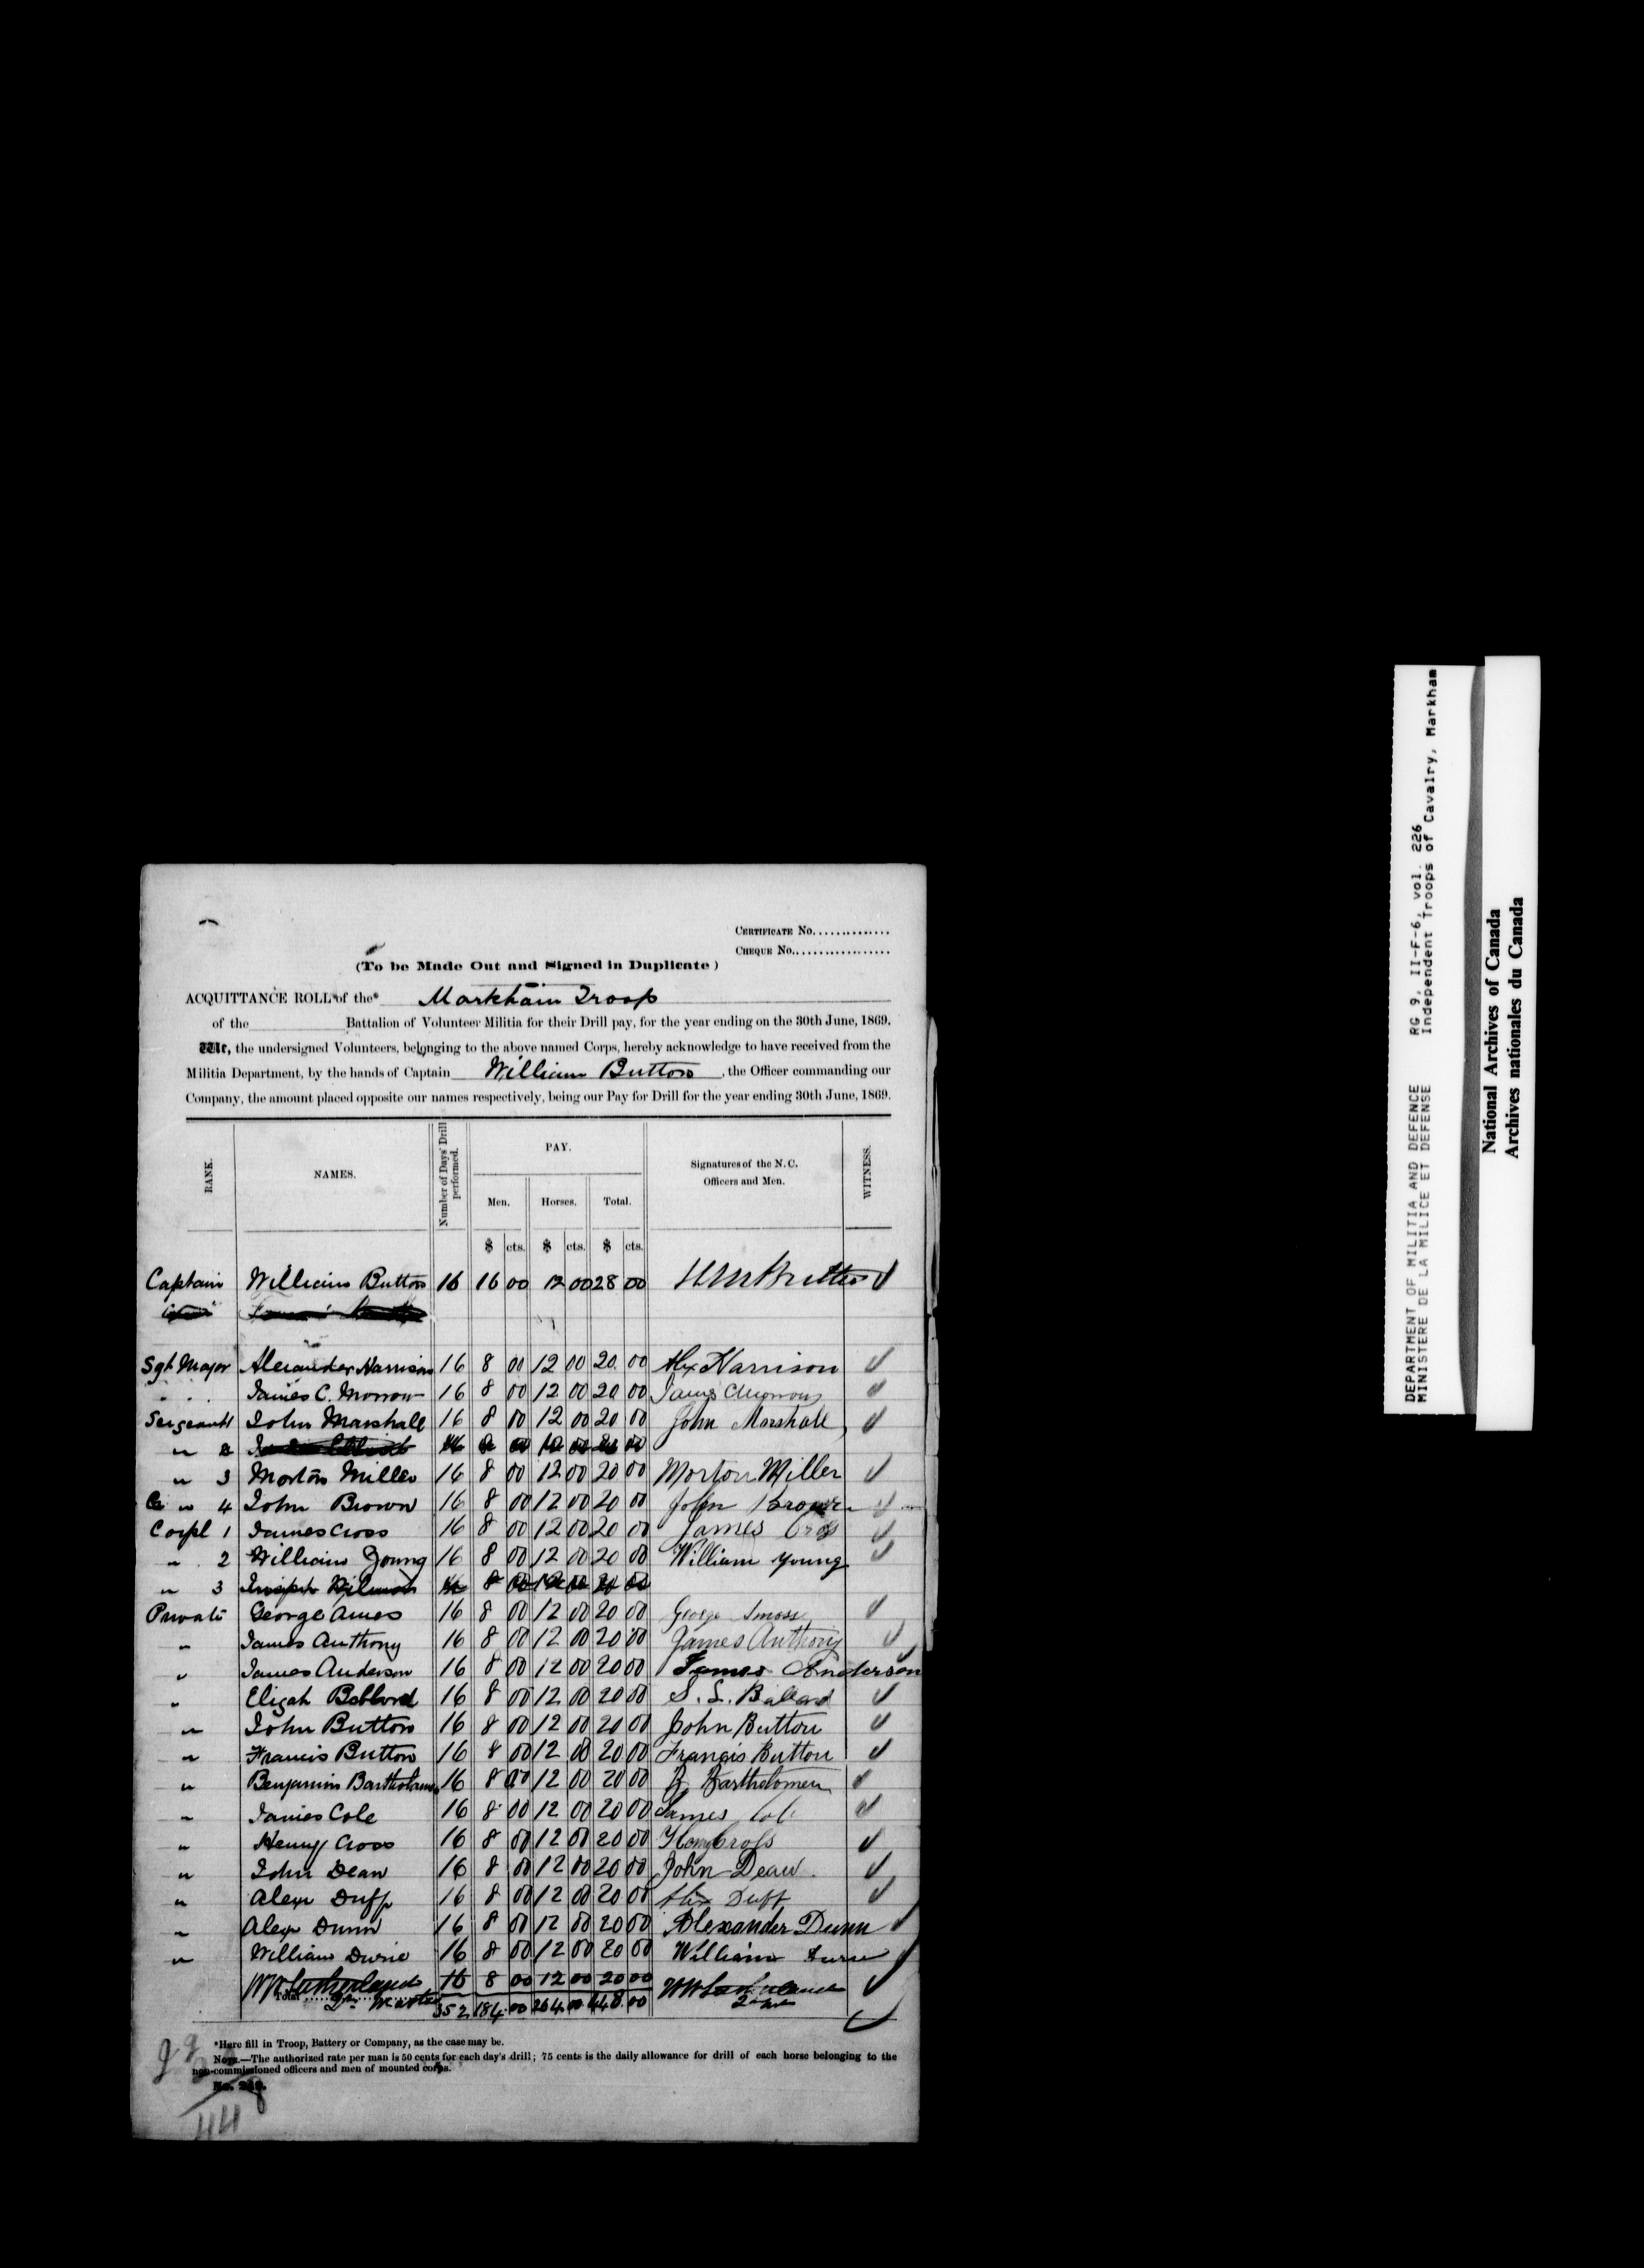 CERTIFICATE No..............
CHEQUE No..................
(To be Made Out and Signed in Duplicate)
ACQUITTANCE ROLL of the* Markham Troop
of the Battalion of Volunteer Militia for their Drill pay, for the year ending on the 30th June, 1869.
We, the undersigned Volunteers, belonging to the above named Corps, hereby acknowledge to have received from the
Militia Department, by the hands of Captain William Button, the Officer commanding our
Company, the amount placed opposite our names respectively, being our Pay for Drill for the year ending 30th June, 1869.
RANK. NAMES. Number of Days' Drill performed. PAY. Signatures of the N.C. Officers and Men. WITNESS.
Men. Horses. Total.
$ cts. $ cts. $ cts.
Captain William Button 16 16 00 12 00 28 00 Wm Button
Sgt Major Alexander Harrison 16 8 00 12 00 20 00 Alex Harrison
" " James C. Morrow 16 8 00 12 00 20 00 James C Morrow
Sergeant 1 John Marshall 16 8 00 12 00 20 00 John Marshall
" 2
" 3 Morton Miller 16 8 00 12 00 20 00 Morton Miller
" 4 John Brown 16 8 00 12 00 20 00 John Brown
Corpl 1 James Cross 16 8 00 12 00 20 00 James Cross
" 2 William Young 16 8 00 12 00 20 00 William Young
" 3 Joseph 16 8 00 12 00 20 00
Private George Ames 16 8 00 12 00 20 00 George
" James Anthony 16 8 00 12 00 20 00 James Anthony
" James Anderson 16 8 00 12 00 20 00 James Anderson
" Elijah 16 8 00 12 00 20 00
" John Button 16 8 00 12 00 20 00 John Button
" Francis Button 16 8 00 12 00 20 00 Francis Button
" Benjamin Bartholomew 16 8 00 12 00 20 00 B Bartholomew
" James Cole 16 8 00 12 00 20 00 James Cole
" Henry Cross 16 8 00 12 00 20 00 Henry Cross
" John Dean 16 8 00 12 00 20 00 John Dean
" Alex Duff 16 8 00 12 00 20 00 Alex Duff
" Alex Dunn 16 8 00 12 00 20 00 Alexander Dunn
" William 16 8 00 12 00 20 00 William
16 8 00 12 00 20 00
Total 352 184 00 264 00 448 00
*Here fill in Troop, Battery or Company, as the case may be.
NOTE.—The authorized rate per man is 50 cents for each day's drill; 75 cents is the daily allowance for drill of each horse belonging to the
non-commissioned officers and men of mounted corps.
44
DEPARTMENT OF MILITIA AND DEFENCE RG 9, II-F-6, vol. 226
MINISTERE DE LA MILICE ET DEFENSE Independent Troops of Cavalry, Markham
National Archives of Canada
Archives nationales du Canada